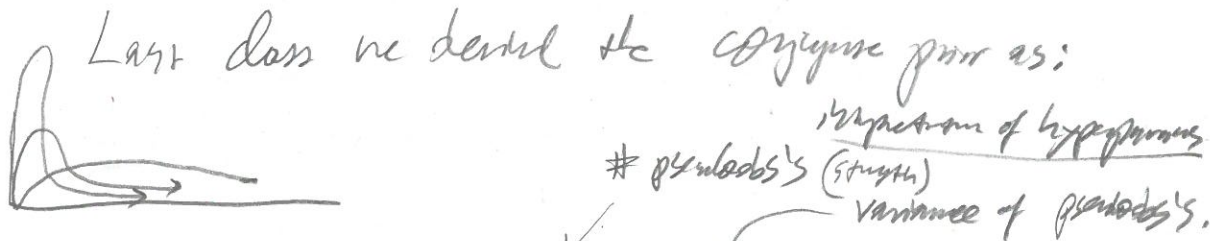 Last class we derived the conjugate prior as:
interpretation of hyperparameters
# pseudoobs's (strength)
variance of pseudoobs's.